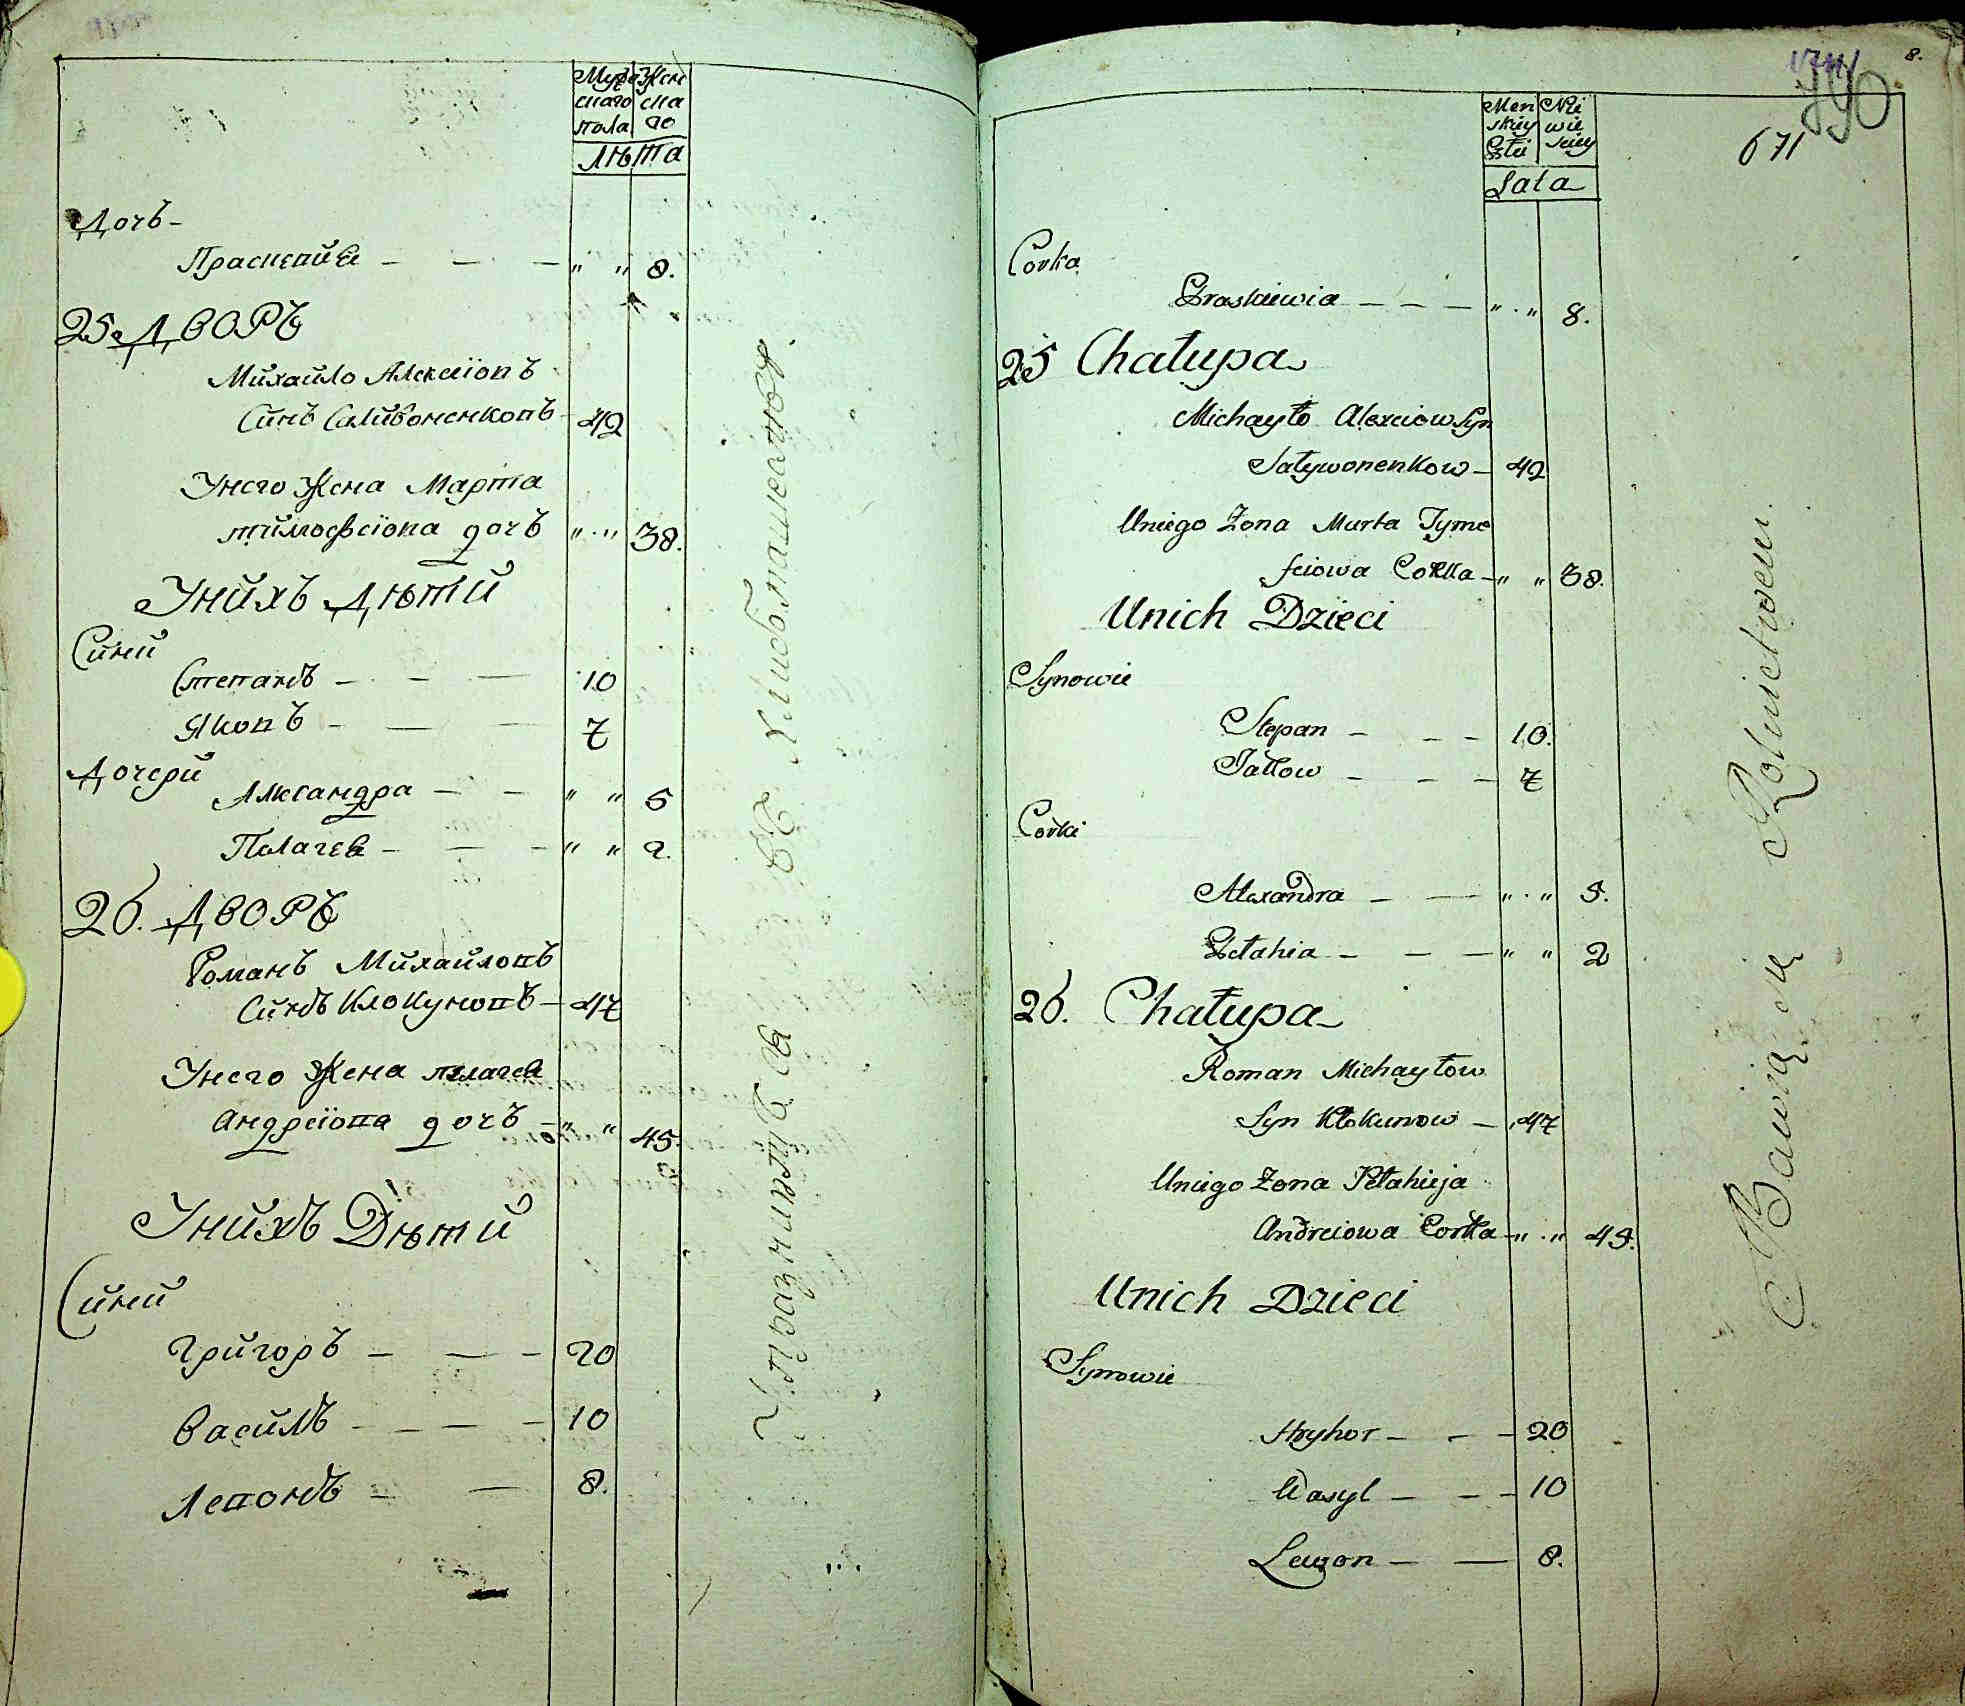 Мужескаго пола
Женска го
Лѣта
Дочъ -
Праскевия - - - " " 8.
25 ДВОРЪ
Михайло Алексїовъ
Синъ Саливоненковъ - 42
Унего Жена Марта
тимофеїова дочъ " " 38.
Унихъ Дѣти
Сини
Степанъ - - - 10
Яковъ - - - 7
Дочери
Александра - - " " 5
Пелагея - - - " " 2.
26. ДВОРЪ
Романъ Михайловъ
Синъ Клокуновъ - 47
Унего Жена пелагея
андреїова дочъ - " " 45.
Унихъ Дѣти
Сини
Григоръ - - - 20
Василъ - - - 10
Левонъ - - 8.
Упражнинтъся въ Хлиборобпашествоя.
8.
671
Men skiey Płci
Nie wie sciey
Lata
Corka
Praskiewia - - - " " 8.
25 Chałupa
Michayło Alexiow Syn
Saływonenkow - 42
Uniego Żona Marta Tymo
feiowa Corka - " " 38.
Unich Dzieci
Synowie
Stepan - - - 10.
Jakow - - - 7
Corki
Alexandra - - " " 5.
Pełahia - - - " " 2
26. Chałupa
Roman Michayłow
Syn Kłokunow - 47
Uniego Żona Pełahieja
Andreiowa Corka - " " 45.
Unich Dzieci
Synowie
Hryhor - - - 20
Wasyl - - - 10
Lewon - - 8.
Bawią się Rolnictwem.